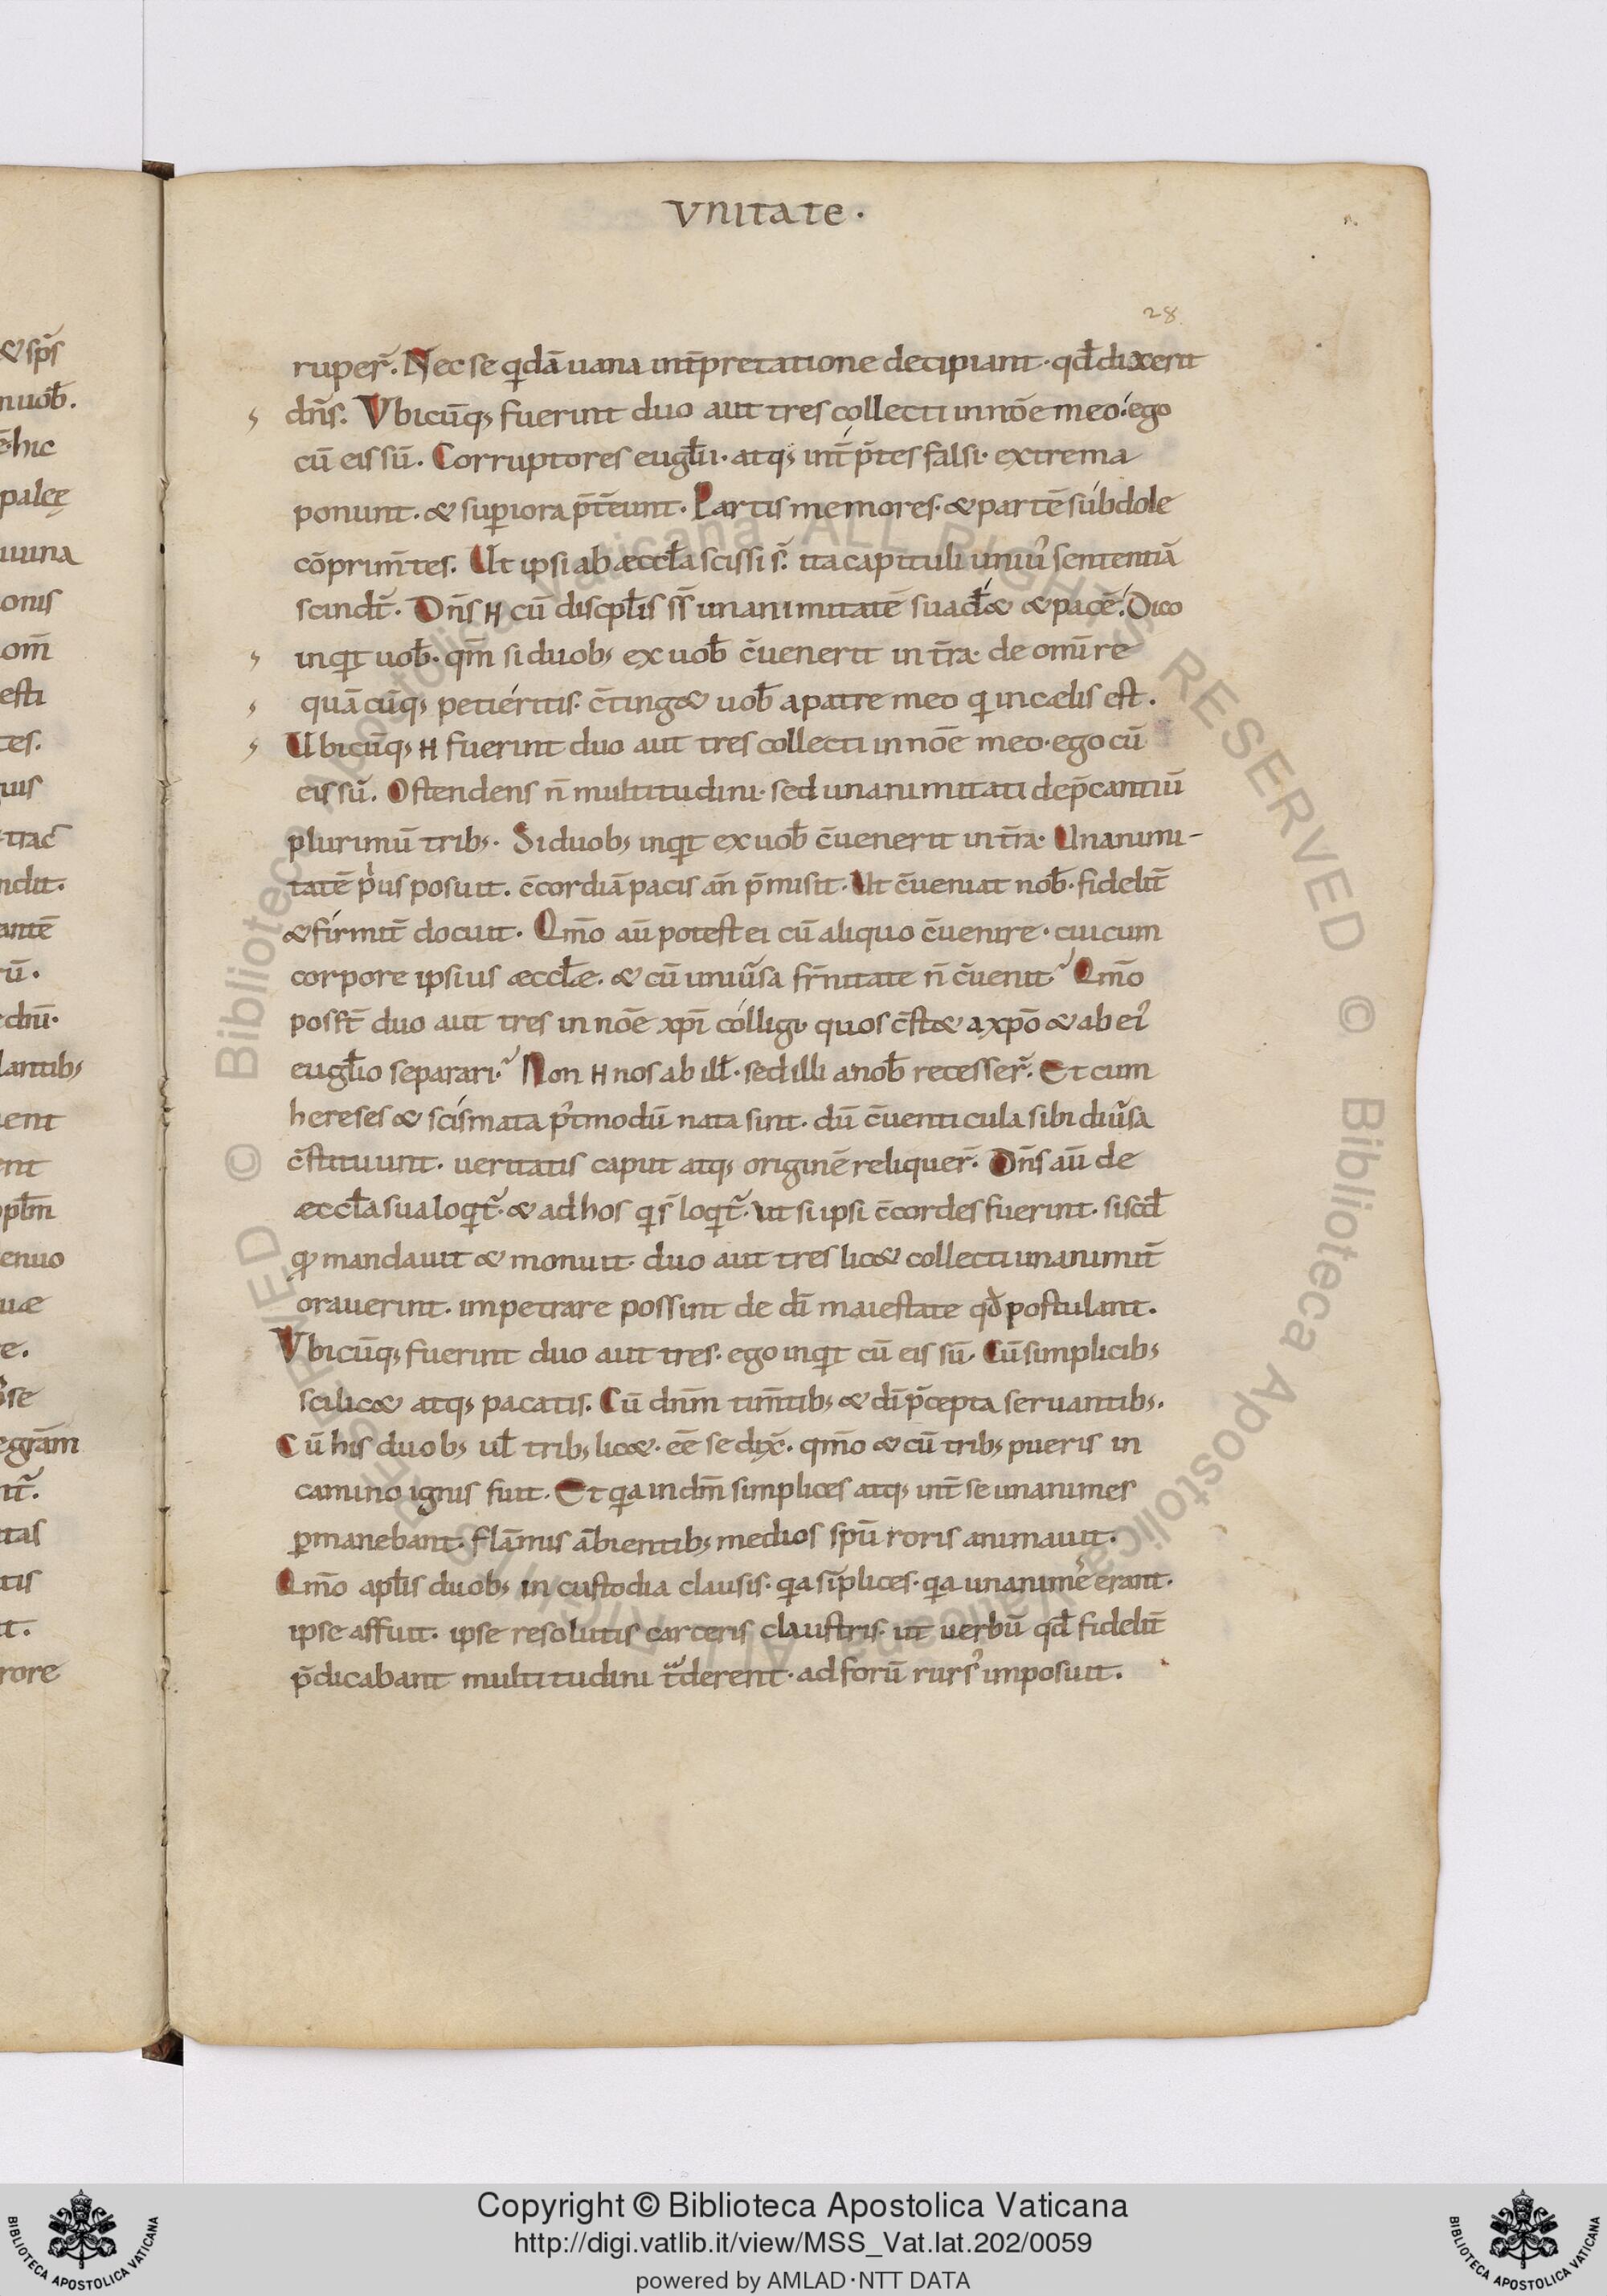 vnitate.
28
ruper̄. Nec se q̇dā uana int̄pretatione decipiant. qd̄ dixerit
dn̄s. Vbicūq; fuerint duo aut tres collecti in nōe meo. ego
cū eis sū. Corruptores eugl̄ii. atq; int̄p̄tes falsi. extrema
ponunt. & suꝑiora p̄t̄eunt. Partis memores. & partē subdole
cōprim̄tes. Ut ipsi ab æccl̄a scissi s̄. ita capituli uniuꝰ sententiā
scindt̄. Dn̄s H cū discpl̄is ss̄ unanimitatē suad̄& & pacē. Dico
inqt uob̄. qm̄ si duob; ex uob̄ c̄uenerit in t̄ra. de omī re
quācūq; petieritis. c̄ting& uob̄ a patre meo q in cælis est.
Ubicūq; H fuerint duo aut tres collecti in nōe meo. ego cū
eis sū. Ostendens n̄ multitudini. sed unanimitati dep̄cantiū
plurimū trib;. Si duob; inqt ex uob̄ c̄uenerit in t̄ra. Unanimi-
tatē pius posuit. c̄cordiā pacis an̄ p̄misit. Ut c̄ueniat nob̄. fidelit̄
& firmit̄ docuit. Qm̄o aū potest ei cū aliquo c̄uenire. cui cum
corpore ipsius æccl̄æ. & cū uniūsa fr̄nitate n̄ c̄uenit? Qm̄o
posst̄ duo aut tres in nōe xp̄i colligi. quos c̄st& a xp̄o & ab eiꝰ
eugl̄io separari? Non H nos ab ill̄. sed illi a nob̄ recesser̄. Et cum
hereses & scismata pꝰtmodū nata sint. dū c̄uenticula sibi diūsa
c̄stituunt. ueritatis caput atq; originē reliquer̄. Dn̄s aū de
æccl̄a sua loqt̄. & ad hos q s̄ loqt̄. ut si ipsi c̄cordes fuerint. si scd̄
q mandauit & monuit. duo aut tres lic& collecti unanimit̄
orauerint. impetrare possint de dī maiestate qd̄ postulant.
Vbicūq; fuerint duo aut tres. ego inqt cū eis sū. Cū simplicib;
scilic& atq; pacatis. Cū dnm̄ tim̄tib; & dī p̄cepta seruantib;.
Cū his duob; ul̄ trib; lic&. eē se dix̄. qm̄o & cū trib; pueris in
camino ignis fuit. Et qa in dm̄ simplices atq; int̄ se unanimes
ꝑmanebant. flāmis ābientib; medios spū roris animauit.
Qm̄o apl̄is duob; in custodia clausis. qa sīplices. qa unanimes erant.
ipse affuit. ipse resolutis carceris claustris. ut uerbū qd̄ fidelit̄
p̄dicabant multitudini t̄derent. ad forū rursꝰ imposuit.
& sp̄s
nuob̄.
ē. hic
palcę
uuna
onis
om̄
esti
tes.
uis
trac̄
ndit.
antē
rū.
dnī.
lantib;
ent
ent
pbm̄
enuo
uæ
e.
se
egrām
nt̄.
itas
tis
t.
rore
Copyright © Biblioteca Apostolica Vaticana
http://digi.vatlib.it/view/MSS_Vat.lat.202/0059
powered by AMLAD·NTT DATA
BIBLIOTECA APOSTOLICA VATICANA
BIBLIOTECA APOSTOLICA VATICANA